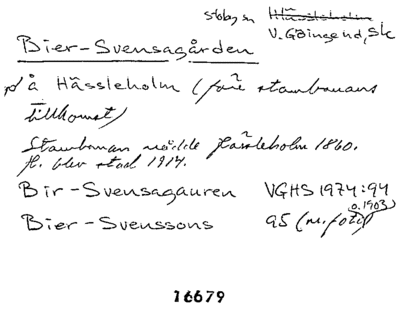 stbby sn Hässleholm
V. Göinge hd, Sk
Bier-Svensagården
på å Hässleholm (före stambanans
tillkomst)
Stambanan nådde Hässleholm 1860.
H. blev stad 1914.
Bir-Svensagauren VGHS 1974:94
Bier-Svenssons 95 (m. foto)
o. 1903)
16679